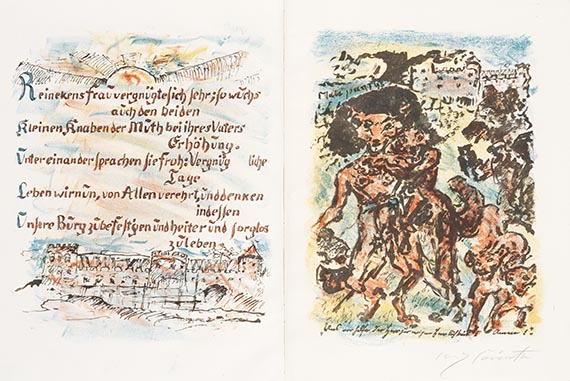 Reinekens frau vergnügte sich sehr; so wuchs
auch den beiden
Kleinen Knaben der Muth bei ihres Vaters
Erhöhung.
Untereinander sprachen sie froh: Vergnüg liche
Tage
Leben wir nun, von Allen verehrt, und denken
indessen
Unsere Burg zu befestigen und heiter und sorglos
zu leben.
Malepartus